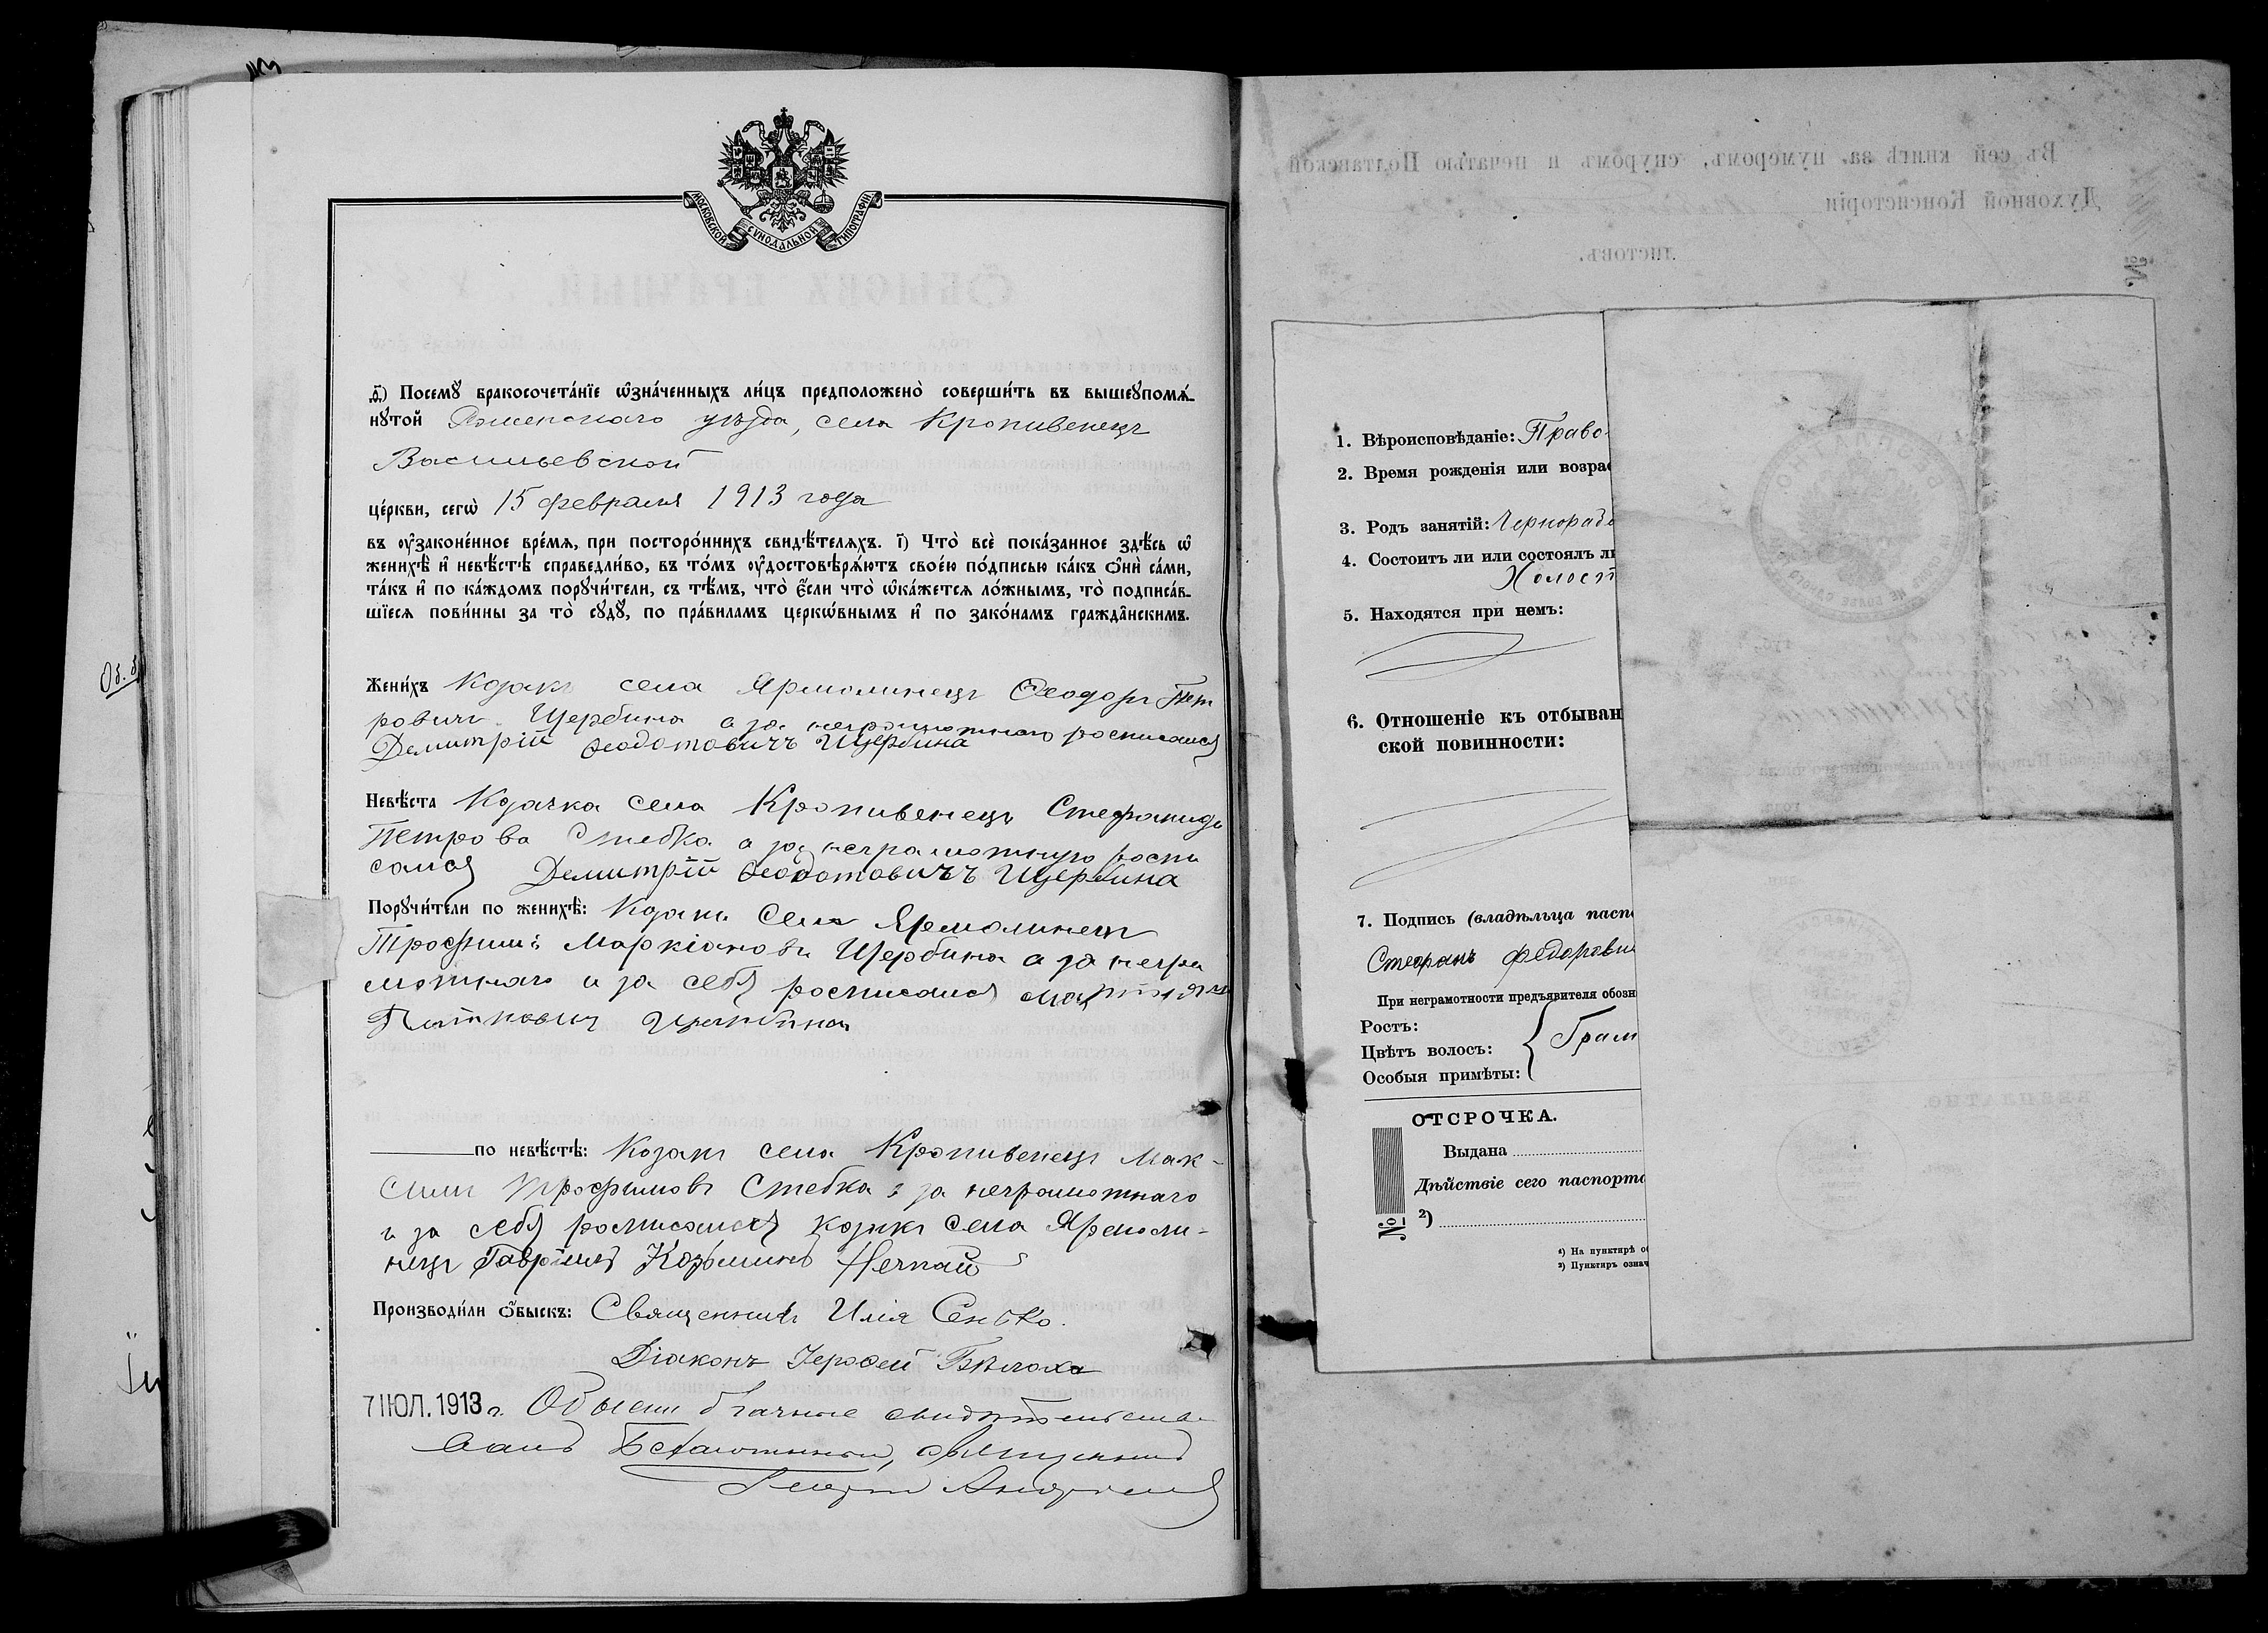 МОСКОВСКОЙ СѴНОДАЛЬНОЙ ТИПОГРАФІИ.
д҃) Посемꙋ̀ бракосочета́нїе ѡ҆зна́ченныхъ ли́цъ предположено̀ соверши́ть въ вышеꙋпомѧ́-
нꙋтой Роменскаго уѣзда, села Кропивенецъ
Васильевской
це́ркви, сегѡ̀ 15 февраля 1913 года
въ ᲂу҆зако́ненное вре́мѧ, при посторо́ннихъ свидѣ́телѧхъ. і҃) Что̀ всѐ пока́занное здѣ́сь ѡ҆
женихѣ̀ и҆ невѣ́стѣ справедли́во, въ то́мъ ᲂу҆достовѣрѧ́ютъ свое́ю по́дписью ка́къ ѻ҆нѝ са́ми,
та́къ и҆ по ка́ждомъ порꙋчи́тели, съ тѣ́мъ, что̀ є҆́сли что̀ ѡ҆ка́жетсѧ ло́жнымъ, то̀ подписа́в-
шїесѧ пови́нны за то̀ сꙋдꙋ̀, по пра́виламъ церкѡ́внымъ и҆ по зако́намъ гражда̑нскимъ.
Жени́хъ Козакъ села Ярмолинецъ Ѳеодоръ Пет
ровичъ Щербина а за неграмотнаго росписался
Демитрій Ѳеодотовичъ Щербина
Невѣ́ста Козачка села Кропивенецъ Стефанида
Петрова Стебка а за неграмотную роспи
сался Демитрій Ѳеодотовичъ Щербина
Порꙋчи́тели по женихѣ̀: Козаки села Ярмолинецъ
Трофимъ Маркіановъ Щербина а за негра
мотнаго и за себя росписался
Щербина
по невѣ́стѣ: Козакъ села Кропивенецъ Мак-
симъ Трофимовъ Стебка а за неграмотнаго
и за себя росписался козакъ села Ярмоли-
нецъ Гавріилъ Козьминъ Нечпай
Производи́ли ѻ҆́быскъ: Священникъ Илія Сенько.
Діаконъ Іероѳей Бѣлоха
7 ІЮЛ. 1913 г. Обыски брачные свидѣтельство-
валъ священникъ
Въ сей книгѣ за нумеромъ, снуромъ и печатью Полтавской
Духовной Консисторіи
листовъ.
№
1. Вѣроисповѣданіе: Право-
2. Время рожденія или возрас
3. Родъ занятій: Чернорабо
4. Состоитъ ли или состоялъ ли
Холост
5. Находятся при немъ:
6. Отношеніе къ отбыван
ской повинности:
7. Подпись (владѣльца паспо
Стефанъ Федорови
При неграмотности предъявителя обозн
Ростъ:
Цвѣтъ волосъ: Грам
Особыя примѣты:
ОТСРОЧКА.
Выдана
Дѣйствіе сего паспорта
2)
№
1) На пунктирѣ об
2) Пунктиръ означ
БЕЗПЛАТНО
БЕЗПЛАТНО.